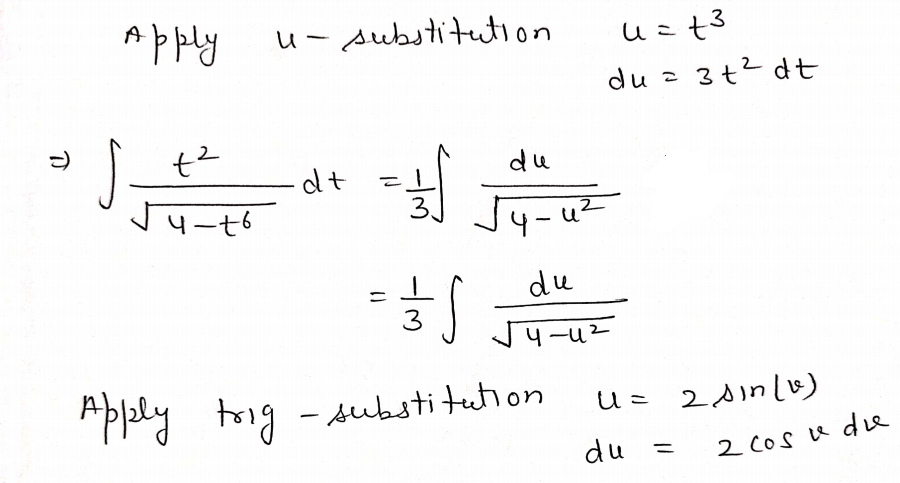 Apply u-substitution u = t³
du = 3t² dt
⇒ ∫ t²/√(4-t⁶) dt = 1/3 ∫ du/√(4-u²)
= 1/3 ∫ du/√(4-u²)
Apply trig-substitution u = 2 sin(v)
du = 2 cos v dv